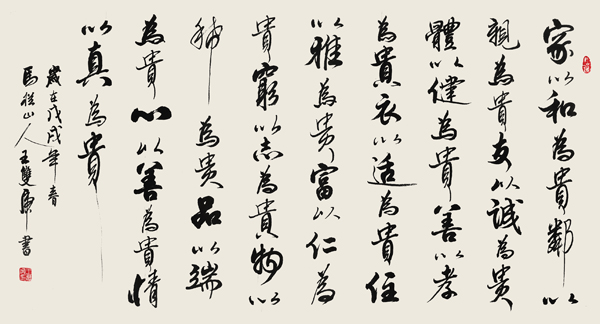 家以和為貴鄰以
親為貴友以誠為貴
體以健為貴善以孝
為貴衣以適為貴住
以雅為貴富以仁為
貴窮以志為貴物以
稀為貴品以端
為貴心以善為貴情
以真為貴
歲在戊戌年春
山人王雙書